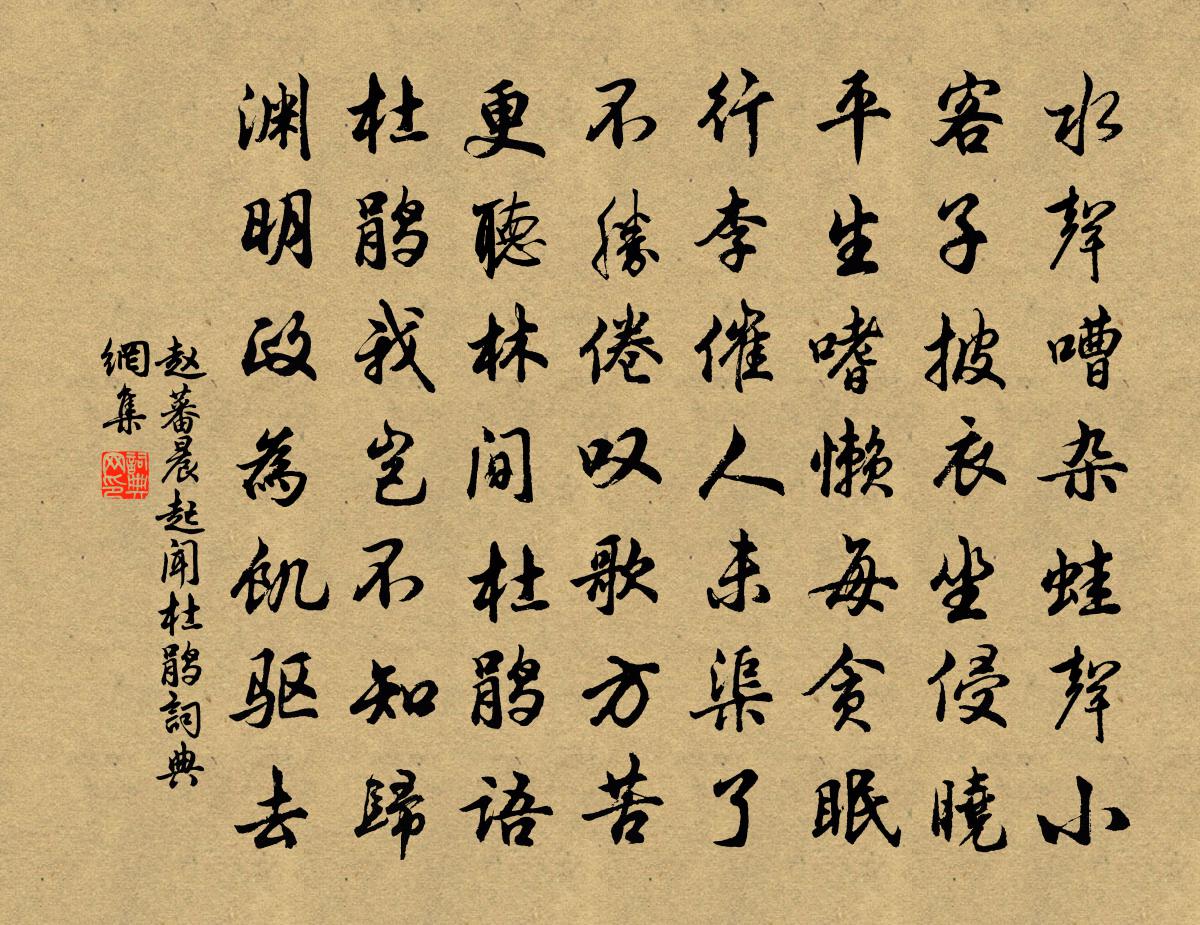 水聲嘈杂蛙聲小
客子披衣坐侵曉
平生嗜懒每贪眠
行李催人未渠了
不勝倦叹歌方苦
更聽林间杜鹃语
杜鹃我岂不知歸
渊明政為饥驱去
赵蕃晨起闻杜鹃詞典
網集
詞典
网印